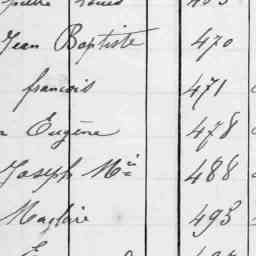 Jean Baptiste 470
francois 471
Eugène 478
Joseph Mie 488
Magloire 493